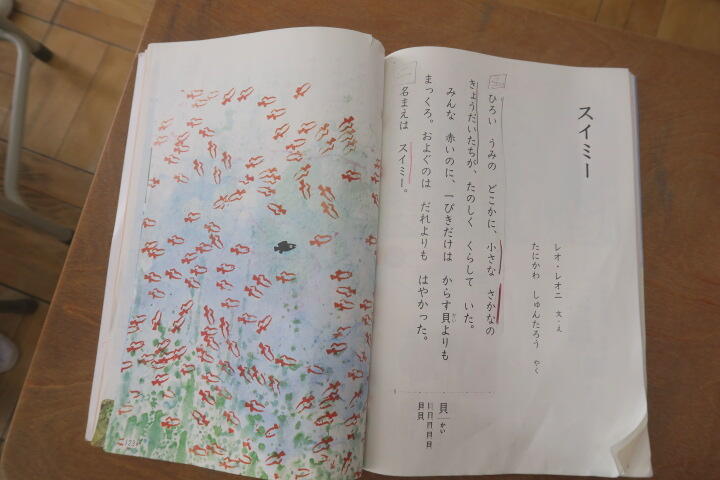 スイミー
レオ・レオニ 文・え
たにかわ しゅんたろう やく
ひろい うみの どこかに、小さな さかなの
きょうだいたちが、たのしく くらして いた。
みんな 赤いのに、一ぴきだけは からす貝よりも
まっくろ。およぐのは だれよりも はやかった。
名まえは スイミー。
貝 かい